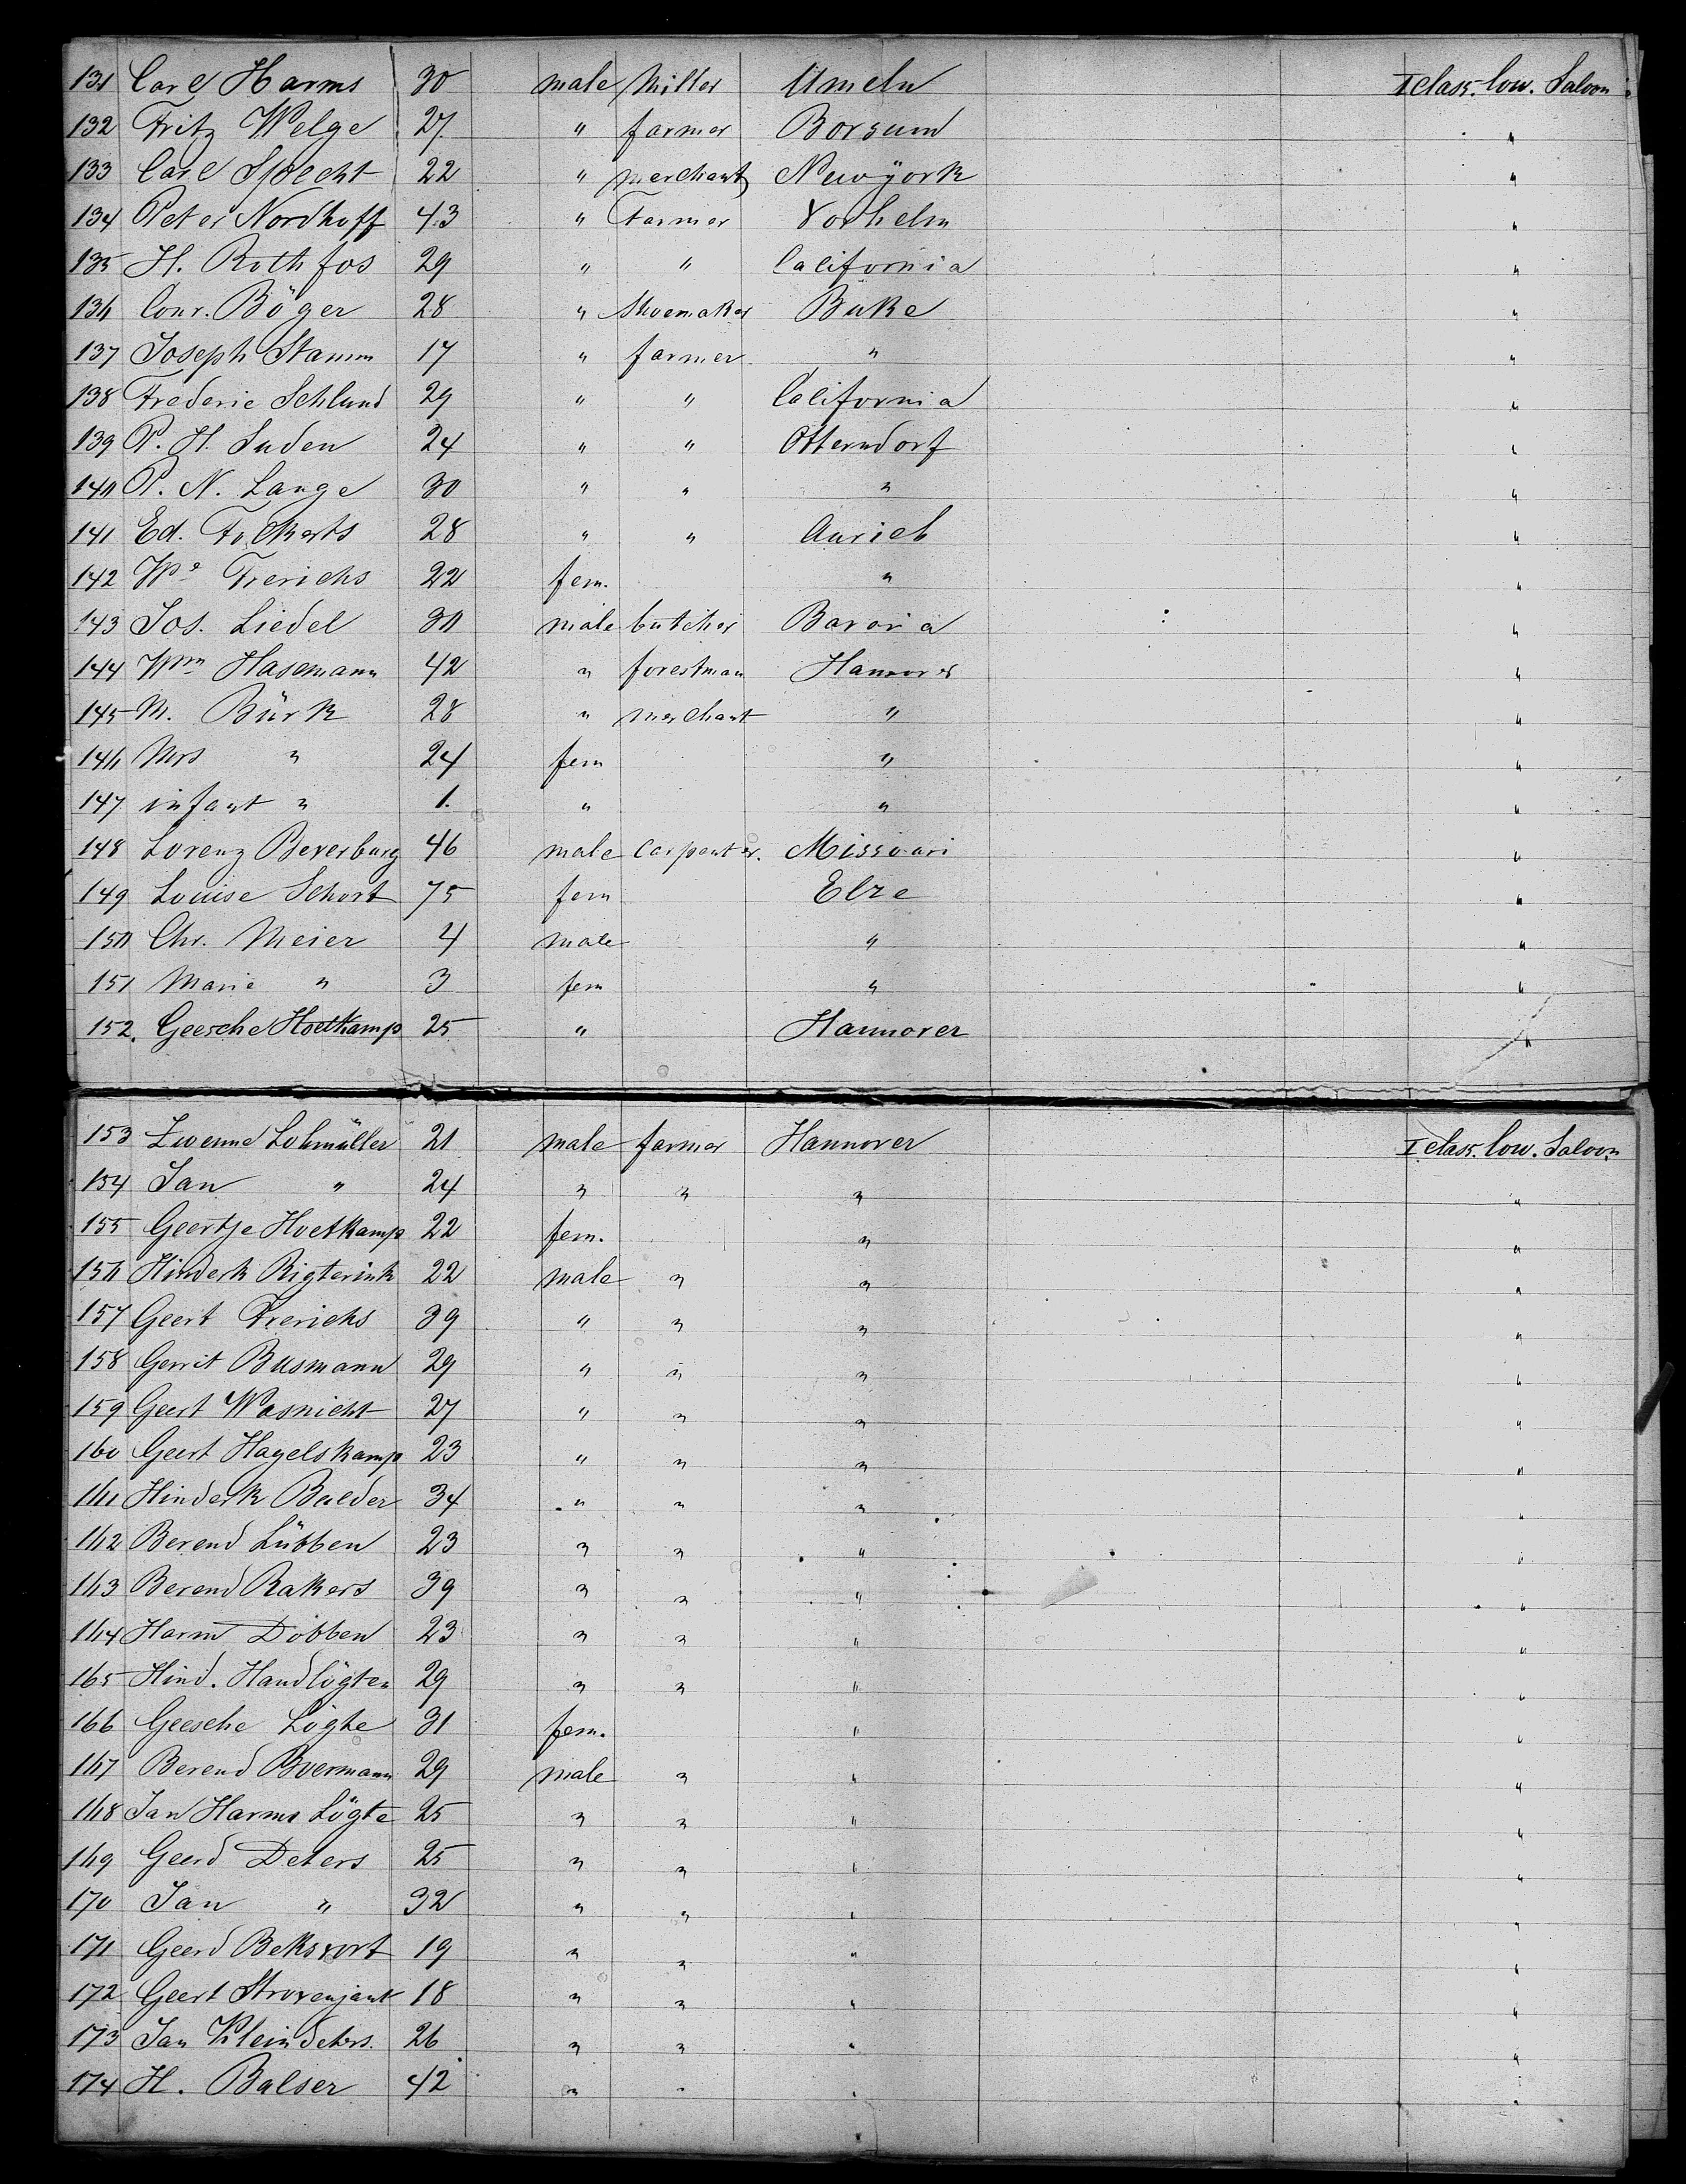 131 Carl Harms 30 male Miller Umeln I class. low. Saloon
132 Fritz Welge 27. " farmer Borsum "
133 Carl Specht 22 " merchant Newyork "
134 Peter Nordhoff 43 " Farmer Vorhelm "
135 H. Rothfos 29 " " California "
136 Conr. Böger 28 " Shoemaker Buke "
137 Joseph Stamm 17 " farmer " "
138 Frederic Schlund 29 " " California "
139 P. H. Suden 24 " " Otterndorf "
140 P. N. Lange 30 " " " "
141 Ed. Folkerts 28 " " Aurich "
142 We Frerichs 22 fem. " "
143 Jos. Liedel 30 male butcher Bavaria "
144 Wm Hasemann 42 " forestman Hannover "
145 M. Bürk 28 " merchant " "
146 Mrs " 24 fem " "
147 infant " 1. " " "
148 Lorenz Beverburg 46 male Carpenter. Missouri "
149 Louise Schort 75 fem Elze "
150 Chr. Meier 4 male " "
151 Marie " 3 fem " "
152. Geesche Hoetkamp 25 " Hannover "
153 Zwenne Lohmüller 21 male farmer Hannover I class. low. Saloon
154 Jan " 24 " " " "
155 Geertje Hoetkamp 22 fem. " "
156 Hinderk Rigterink 22 male " " "
157 Geert Frerichs 39 " " " "
158 Gerrit Busmann 29 " " " "
159 Geert Wasnicht 27 " " " "
160 Geert Hagelskamp 23 " " " "
161 Hinderk Balder 34 " " " "
162 Berend Lübben 23 " " " "
163 Berend Rakers 39 " " " "
164 Harm Dobben 23 " " " "
165 Hind. Handlögten 29 " " " "
166 Geesche Lögte 31 fem. " "
167 Berend Boermann 29 male " " "
168 Jan Harms Lögte 25 " " " "
169 Geerd Deters 25 " " " "
170 Jan " 32 " " " "
171 Geerd Beksvort 19 " " " "
172 Geert Strovenjank 18 " " " "
173 Jan Kleindeters. 26 " " " "
174 H. Balser 42 " " " "